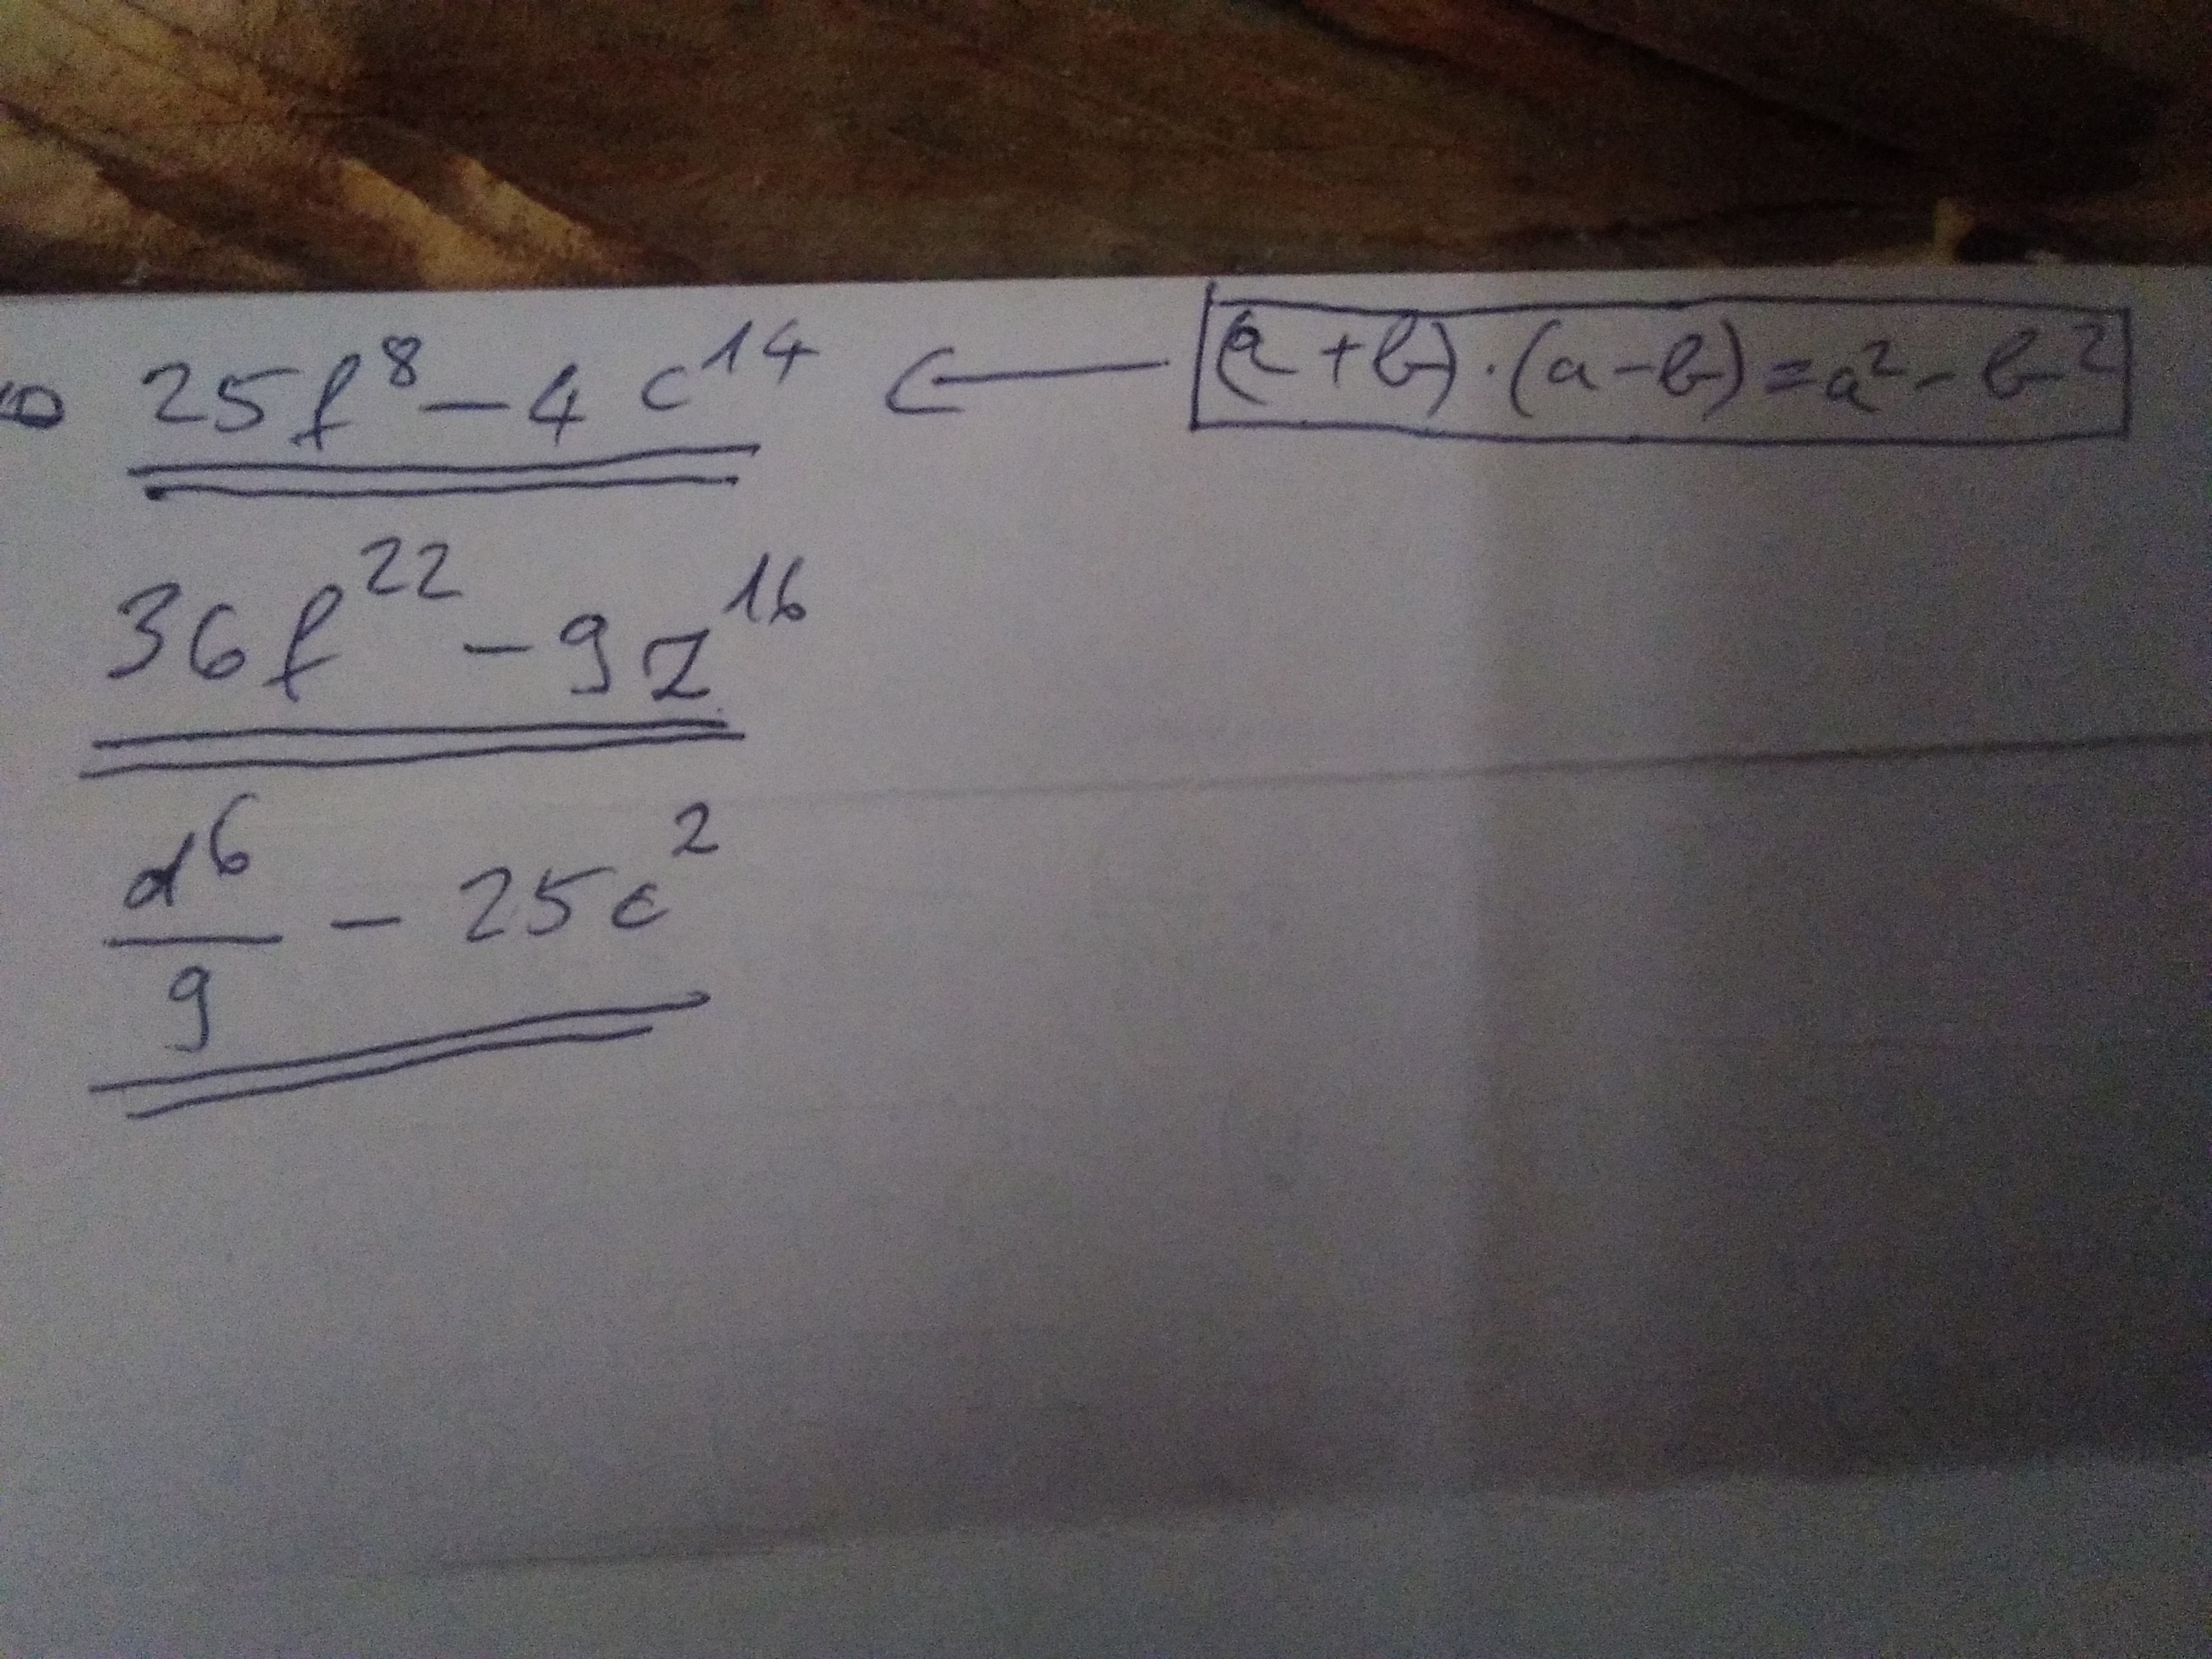 25f⁸ – 4c¹⁴ ← (a + b) · (a – b) = a² – b²
36f²² – 9z¹⁶
d⁶/9 – 25c²